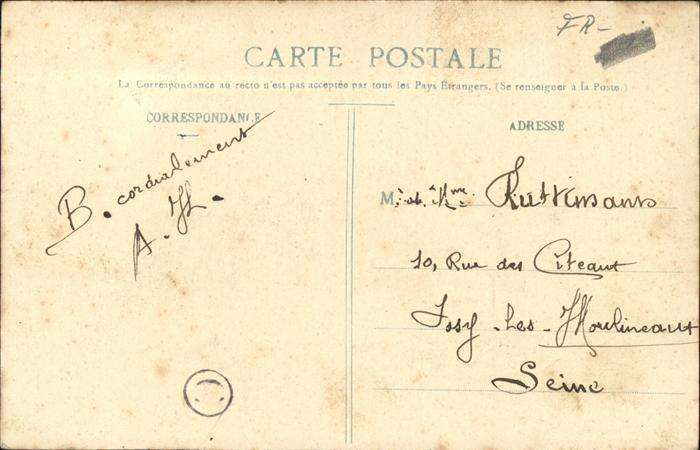 FR-
CARTE POSTALE
La Correspondance au recto n'est pas acceptée par tous les Pays Étrangers. (Se renseigner à la Poste.)
CORRESPONDANCE
B. cordialement
A. H.
ADRESSE
M. et Mme
10, Rue des Citeaux
Issy-les-Moulineaux
Seine
C